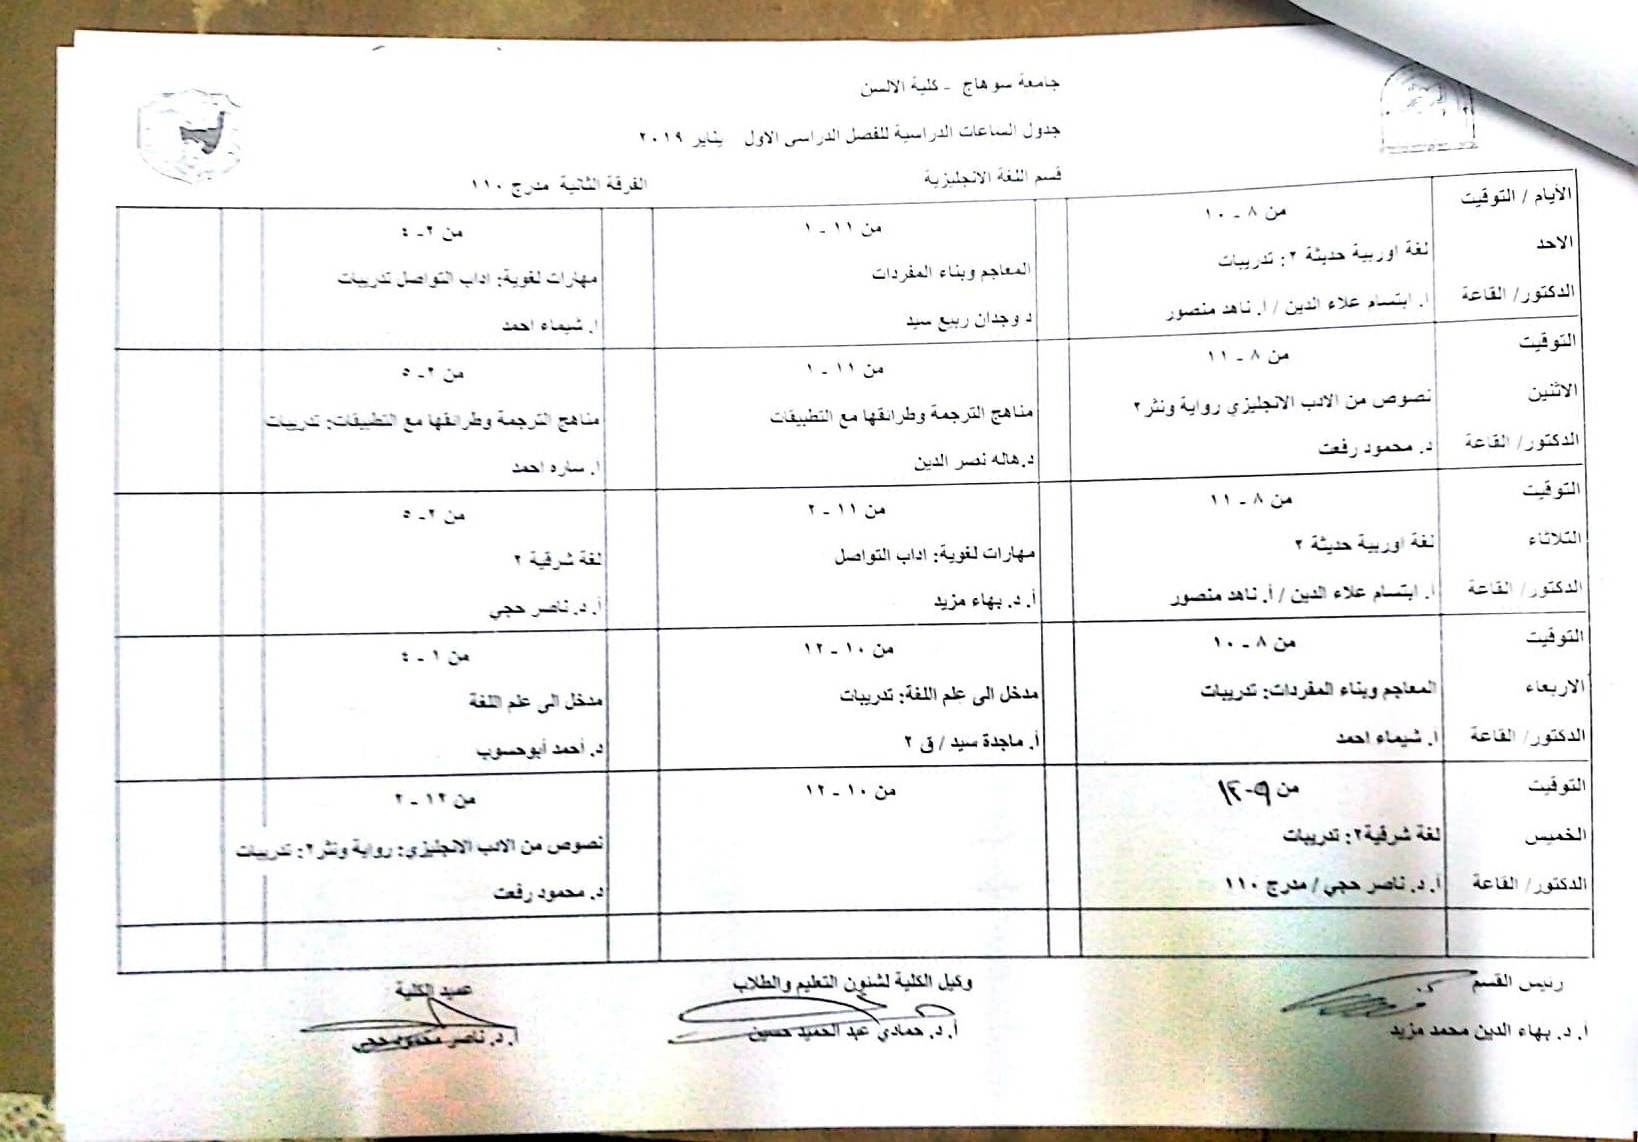 جامعة سوهاج - كلية الالسن
جدول الساعات الدراسية للفصل الدراسى الاول يناير ٢٠١٩
قسم اللغة الانجليزية الفرقة الثانية مدرج ١١٠
الأيام / التوقيت من ٨ - ١٠ من ١١ - ١ من ٢- ٤
الاحد لغة اوربية حديثة ٢: تدريبات المعاجم وبناء المفردات مهارات لغوية: اداب التواصل تدريبات
الدكتور/ القاعة ا. ابتسام علاء الدين / ا. ناهد منصور د وجدان ربيع سيد ا. شيماء احمد
التوقيت من ٨ - ١١ من ١١ - ١ من ٢- ٥
الاثنين نصوص من الادب الانجليزي رواية ونثر٢ مناهج الترجمة وطرائقها مع التطبيقات مناهج الترجمة وطرائقها مع التطبيقات: تدريبات
الدكتور/ القاعة د. محمود رفعت د.هاله نصر الدين ا. ساره احمد
التوقيت من ٨ - ١١ من ١١ - ٢ من ٢- ٥
الثلاثاء لغة اوربية حديثة ٢ مهارات لغوية: اداب التواصل لغة شرقية ٢
الدكتور/ القاعة ا. ابتسام علاء الدين / أ. ناهد منصور أ. د. بهاء مزيد أ.د. ناصر حجي
التوقيت من ٨ - ١٠ من ١٠ - ١٢ من ١ - ٤
الاربعاء المعاجم وبناء المفردات: تدريبات مدخل الى علم اللغة: تدريبات مدخل الى علم اللغة
الدكتور/ القاعة ا. شيماء احمد أ. ماجدة سيد / ق ٢ د. أحمد أبوحسوب
التوقيت من ٩-١٢ من ١٠ - ١٢ من ١٢ - ٢
الخميس لغة شرقية٢: تدريبات نصوص من الادب الانجليزي: رواية ونثر٢: تدريبات
الدكتور/ القاعة أ.د. ناصر حجي / مدرج ١١٠ د. محمود رفعت
رئيس القسم وكيل الكلية لشئون التعليم والطلاب عميد الكلية
أ. د. بهاء الدين محمد مزيد أ.د. حمادي عبد الحميد حسين أ.د. ناصر محمود حجي